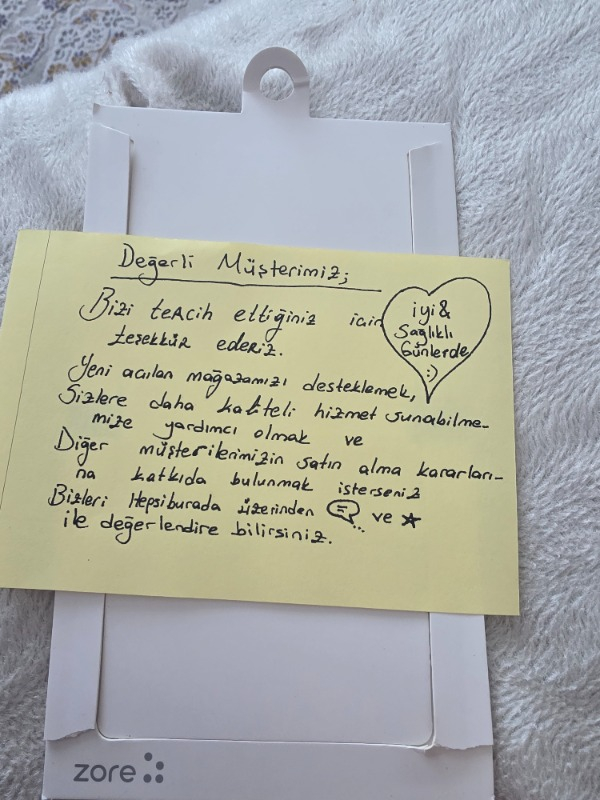 Değerli Müşterimiz;
Bizi tercih ettiğiniz için
teşekkür ederiz.
iyi &
Sağlıklı
Günlerde
:)
Yeni açılan mağazamızı desteklemek,
Sizlere daha kaliteli hizmet sunabilme-
mize yardımcı olmak ve
Diğer müşterilerimizin satın alma kararları-
na katkıda bulunmak isterseniz
Bizleri Hepsiburada üzerinden ve ★
ile değerlendire bilirsiniz.
zore